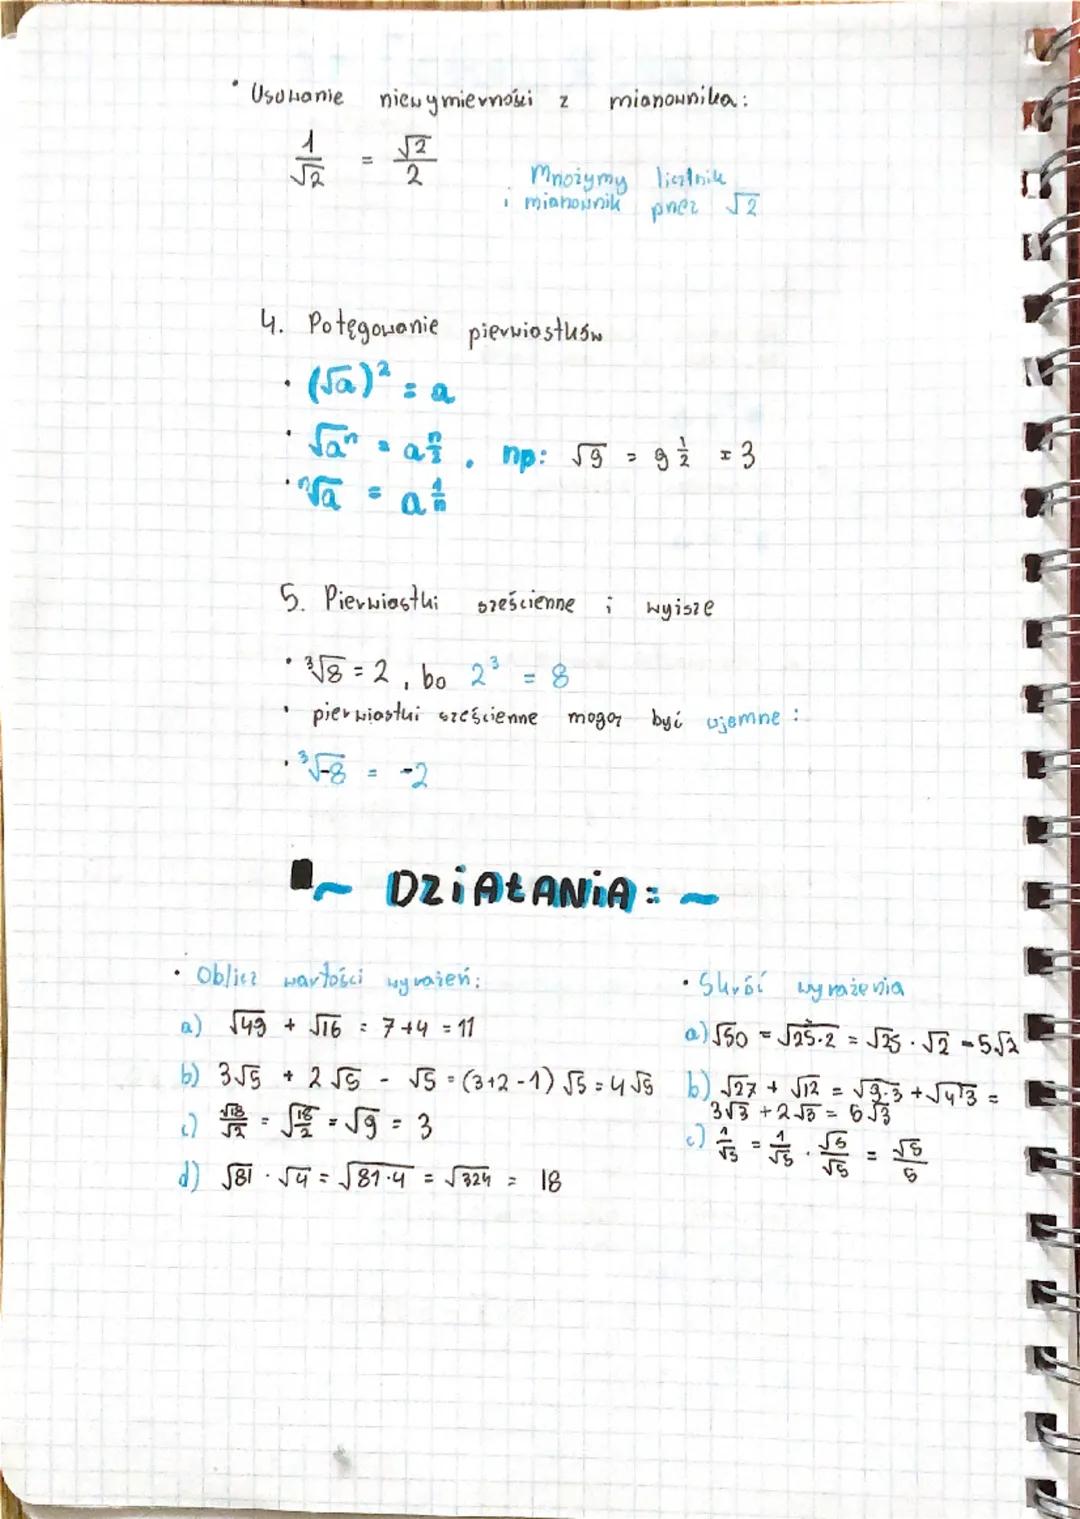 • Usuwanie niewymierności z mianownika:
1/√2 = √2/2
Mnożymy licznik
i mianownik przez √2
4. Potęgowanie pierwiastków
• (√a)² = a
• √aⁿ = a^(n/2), np: √9 = 9^(1/2) = 3
• ⁿ√a = a^(1/n)
5. Pierwiastki sześcienne i wyższe
• ³√8 = 2, bo 2³ = 8
• pierwiastki sześcienne mogą być ujemne:
• ³√-8 = -2
~ DZiAŁANiA: ~
• Oblicz wartości wyrażeń:
a) √49 + √16 = 7+4 = 11
b) 3√5 + 2√5 - √5 = (3+2-1)√5 = 4√5
c) √18/√2 = √(18/2) = √9 = 3
d) √81 · √4 = √81·4 = √324 = 18
• Skróć wyrażenia
a) √50 = √25·2 = √25 · √2 = 5√2
b) √27 + √12 = √9·3 + √4·3 =
3√3 + 2√3 = 5√3
c) 1/√5 = 1/√5 · √5/√5 = √5/5